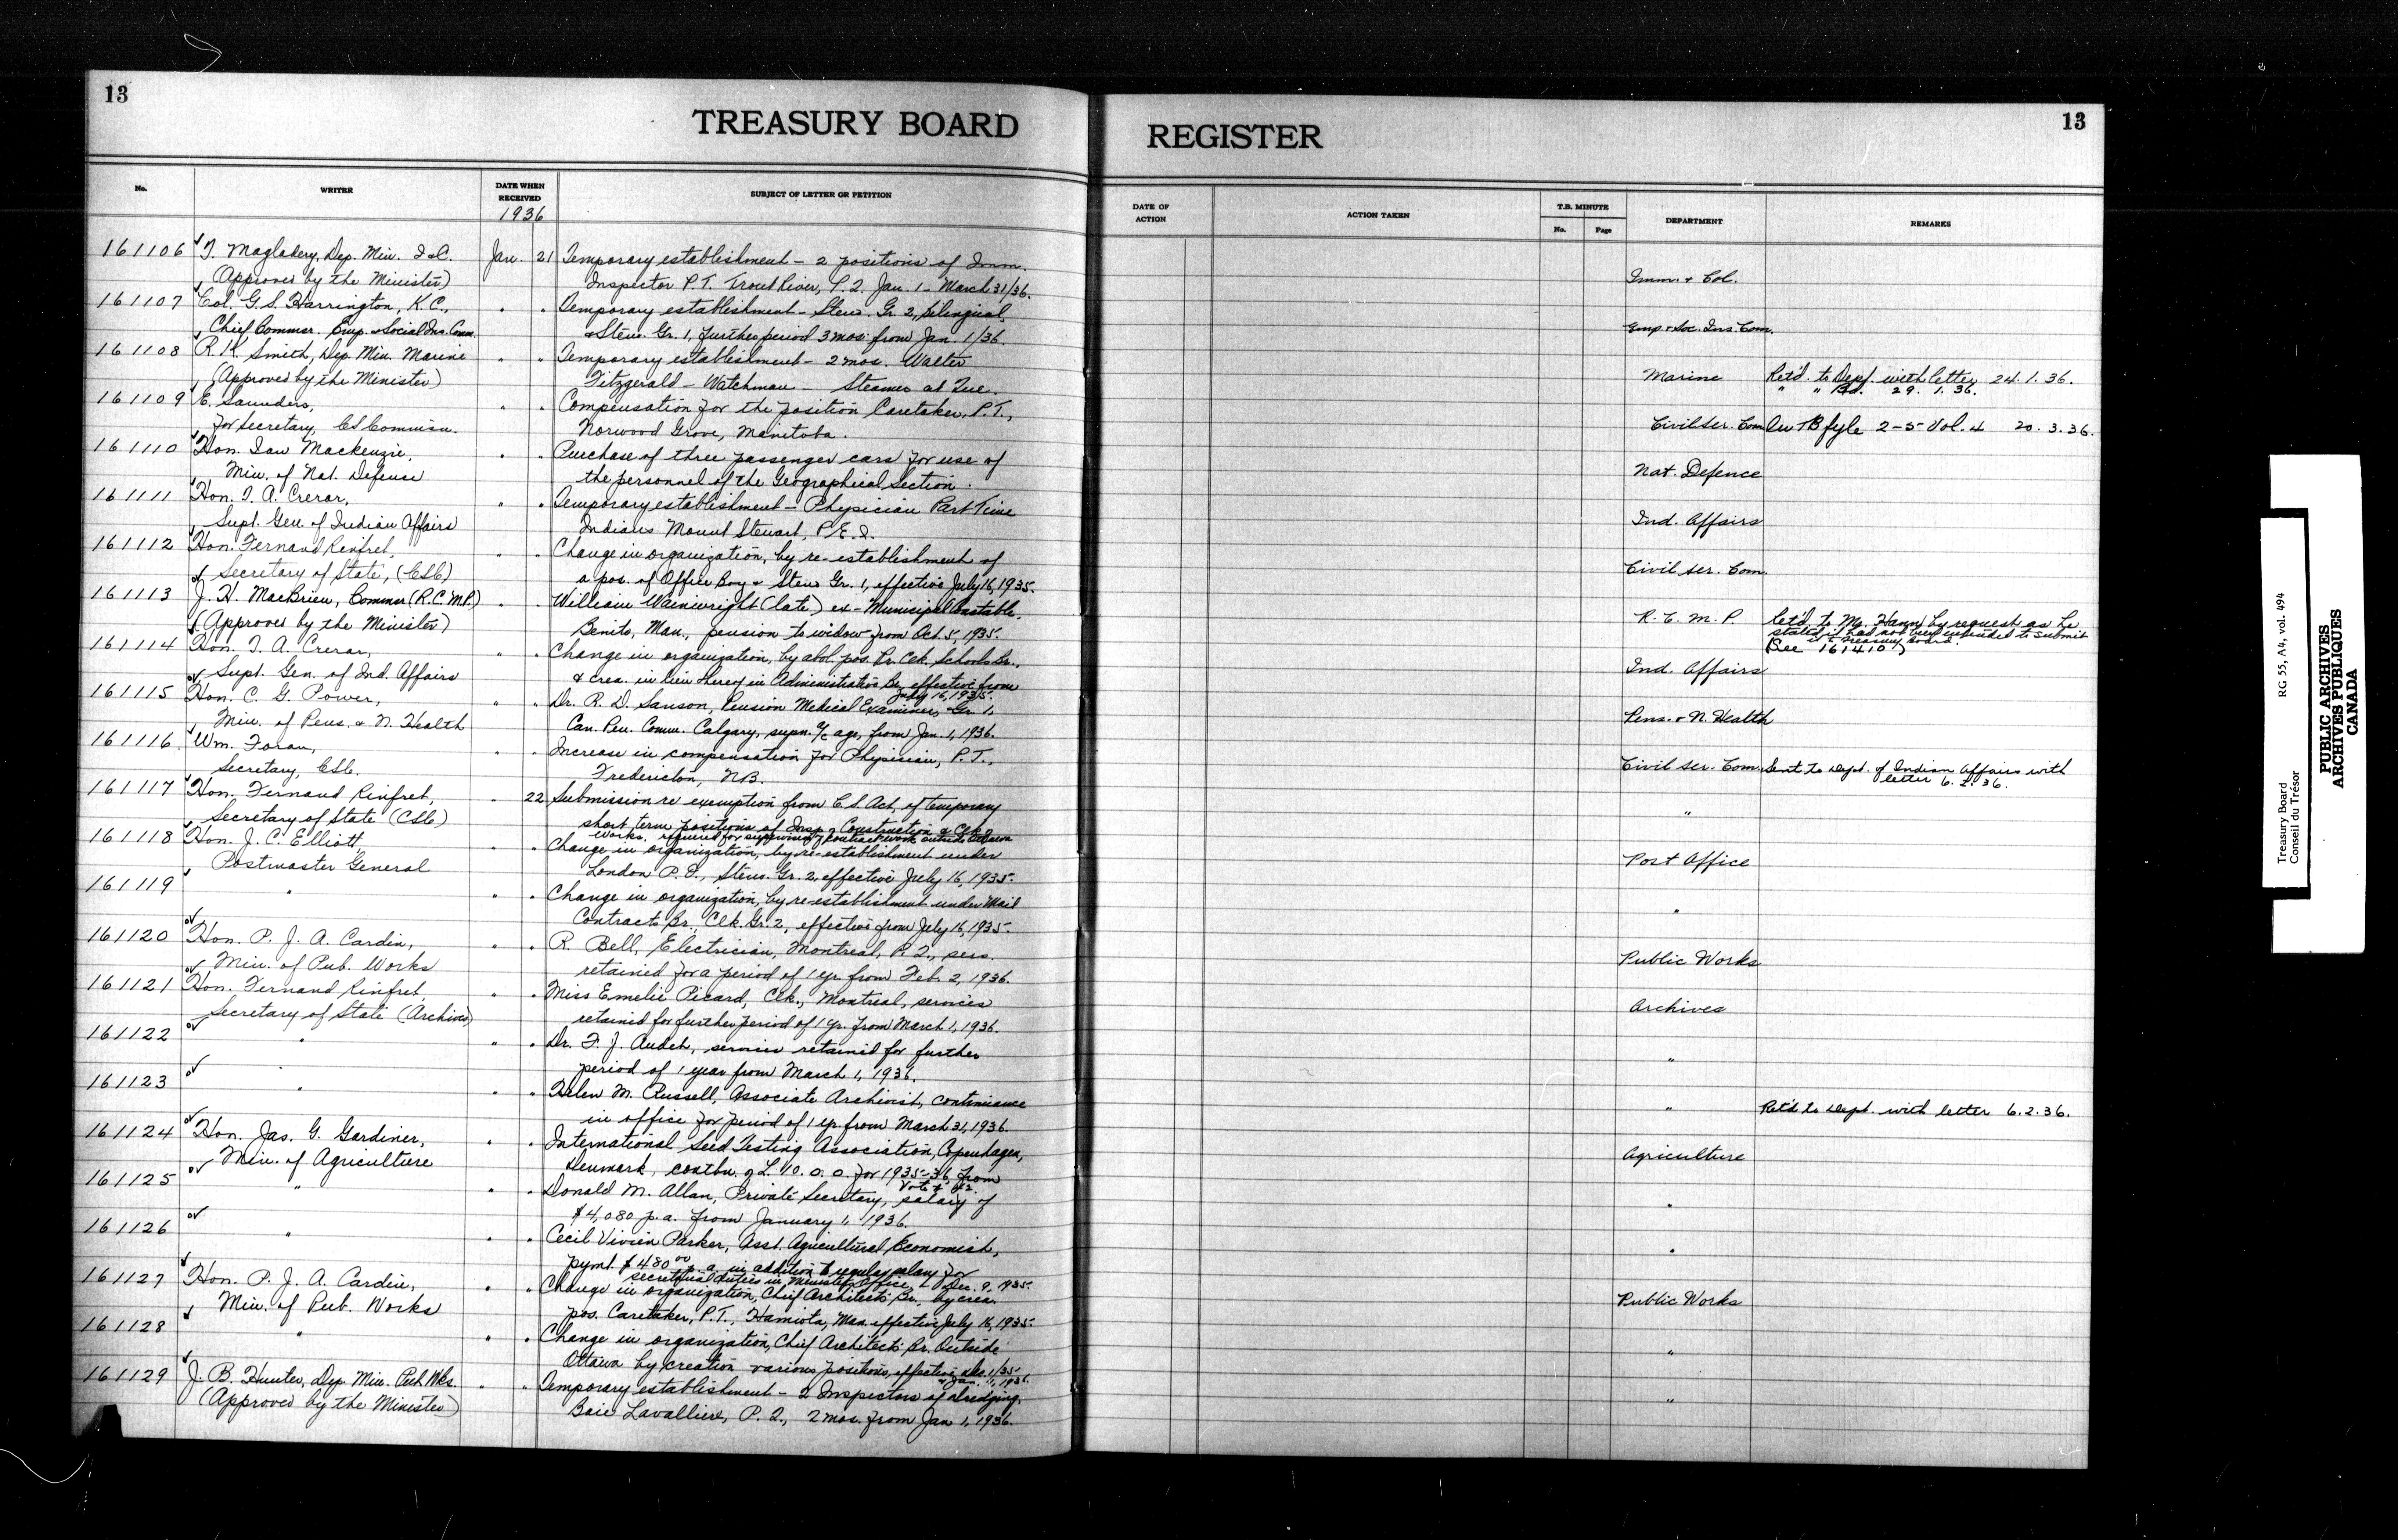 13
13
TREASURY BOARD
REGISTER
No.
WRITER
DATE WHEN RECEIVED
1936
SUBJECT OF LETTER OR PETITION
DATE OF ACTION
ACTION TAKEN
T.B. MINUTE
No.
Page
DEPARTMENT
REMARKS
161106 T. Magladery, Dep. Min. I. & C. Jan. 21 Temporary establishment - 2 positions of Imm.
(Approved by the Minister) Inspector P.T. Trout River, P.Q. Jan. 1 - March 31/36. Imm. & Col.
161107 Col. G.S. Harrington, K.C., " " Temporary establishment - Steno. Gr. 2, bilingual,
Chief Commsr. Emp. & Social Ins. Comm. & Steno. Gr. 1, further period 3 mos. from Jan. 1/36. Emp. & Soc. Ins. Com.
161108 R. K. Smith, Dep. Min. Marine " " Temporary establishment - 2 mos. Walter
(Approved by the Minister) Fitzgerald - Watchman - Steamer at Que. Marine Ret'd. to Dept. with letter 24.1.36.
" " Bd. 29.1.36.
161109 E. Saunders, " " Compensation for the position Caretaker, P.T.,
for Secretary, C S Commisn. Norwood Grove, Manitoba. Civil Ser. Com. On TB fyle 2-5 Vol. 4 20.3.36.
161110 Hon. Ian Mackenzie, " " Purchase of three passenger cars for use of
Min. of Nat. Defense the personnel of the Geographical Section. Nat. Defence
161111 Hon. T. A. Crerar, " " Temporary establishment - Physician Part Time
Supt. Gen. of Indian Affairs Indians Mount Stewart, P.E.I. Ind. Affairs
161112 Hon. Fernand Rinfret, " " Change in organization, by re-establishment of
Secretary of State, (CSC) a pos. of Office Boy & Steno Gr. 1, effective July 16, 1935. Civil Ser. Com.
161113 J. H. MacBrien, Commsr (R.C.M.P.) " " William Wainwright (late) ex-Municipal Constable,
(Approved by the Minister) Benito, Man., pension to widow from Oct. 5, 1935. R. C. M. P. Ret'd. to Mr. Hann by request as he
stated it had not been intended to submit
it to Treasury Board.
(See 161410)
161114 Hon. T. A. Crerar, " " Change in organization, by abol. pos. Pr. Clk. Schools Br.,
Supt. Gen. of Ind. Affairs & crea. in lieu thereof in Administrative Br. effective from
July 16, 1935. Ind. Affairs
161115 Hon. C. G. Power, " " Dr. R. D. Sanson, Pension Medical Examiner, Gr. 1,
Min. of Pens. & N. Health Can. Pen. Comm. Calgary, supn. a/c age, from Jan. 1, 1936. Pens. & N. Health
161116 Wm. Foran, " " Increase in compensation for Physician, P.T.,
Secretary, CSC. Fredericton, N.B. Civil Ser. Com. Sent to Dept. of Indian Affairs with
letter 6.2.36.
161117 Hon. Fernand Rinfret, " 22 Submission re exemption from C.S. Act, of temporary
Secretary of State (CSC) short term positions of Insp. of Construction & Clk. of
Works. required for supervising of contract work outside Ottawa "
161118 Hon. J. C. Elliott, " " Change in organization, by re-establishment under
Postmaster General London P.O., Steno. Gr. 2, effective July 16, 1935. Post Office
161119 " " " Change in organization, by re-establishment under Mail
Contracts Br., Clk. Gr. 2, effective from July 16, 1935. "
161120 Hon. P. J. A. Cardin, " " R. Bell, Electrician, Montreal, P.Q., sers.
Min. of Pub. Works retained for a period of 1 yr. from Feb. 2, 1936. Public Works
161121 Hon. Fernand Rinfret, " " Miss Emelie Picard, Clk., Montreal, services
Secretary of State (Archives) retained for further period of 1 yr. from March 1, 1936. Archives
161122 " " " Dr. F. J. Audet, services retained for further
period of 1 year from March 1, 1936. "
161123 " " " Helen M. Russell, Associate Archivist, continuance
in office for period of 1 yr. from March 31, 1936. " Ret'd to Dept. with letter 6.2.36.
161124 Hon. Jas. G. Gardiner, " " International Seed Testing Association, Copenhagen,
Min. of Agriculture Denmark, contbn. of L 10.0.0 for 1935-36, from
Agriculture
161125 " " " Donald M. Allan, Private Secretary, salary of
$4,080 p.a. from January 1, 1936. "
161126 " " " Cecil Vivien Parker, Asst. Agricultural Economist,
pymt. $480.00 p.a. in addition to regular salary for
secretarial duties in Minister's Office, Dec. 9, 1935. "
161127 Hon. P. J. A. Cardin, " " Change in organization, Chief Architect's Br., by crea.
Min. of Pub. Works pos. Caretaker, P.T., Hamiota, Man. effective July 16, 1935. Public Works
161128 " " " Change in organization, Chief Architect's Br. Outside
Ottawa by creation various positions, effective
& Jan. 1, 1936. "
161129 J. B. Hunter, Dep. Min. Pub. Wks. " " Temporary establishment - 2 Inspectors of dredging,
(Approved by the Minister) Baie Lavalliere, P.Q., 2 mos. from Jan 1, 1936. "
Treasury Board
Conseil du Trésor
RG 55, A4, vol. 494
PUBLIC ARCHIVES
ARCHIVES PUBLIQUES
CANADA